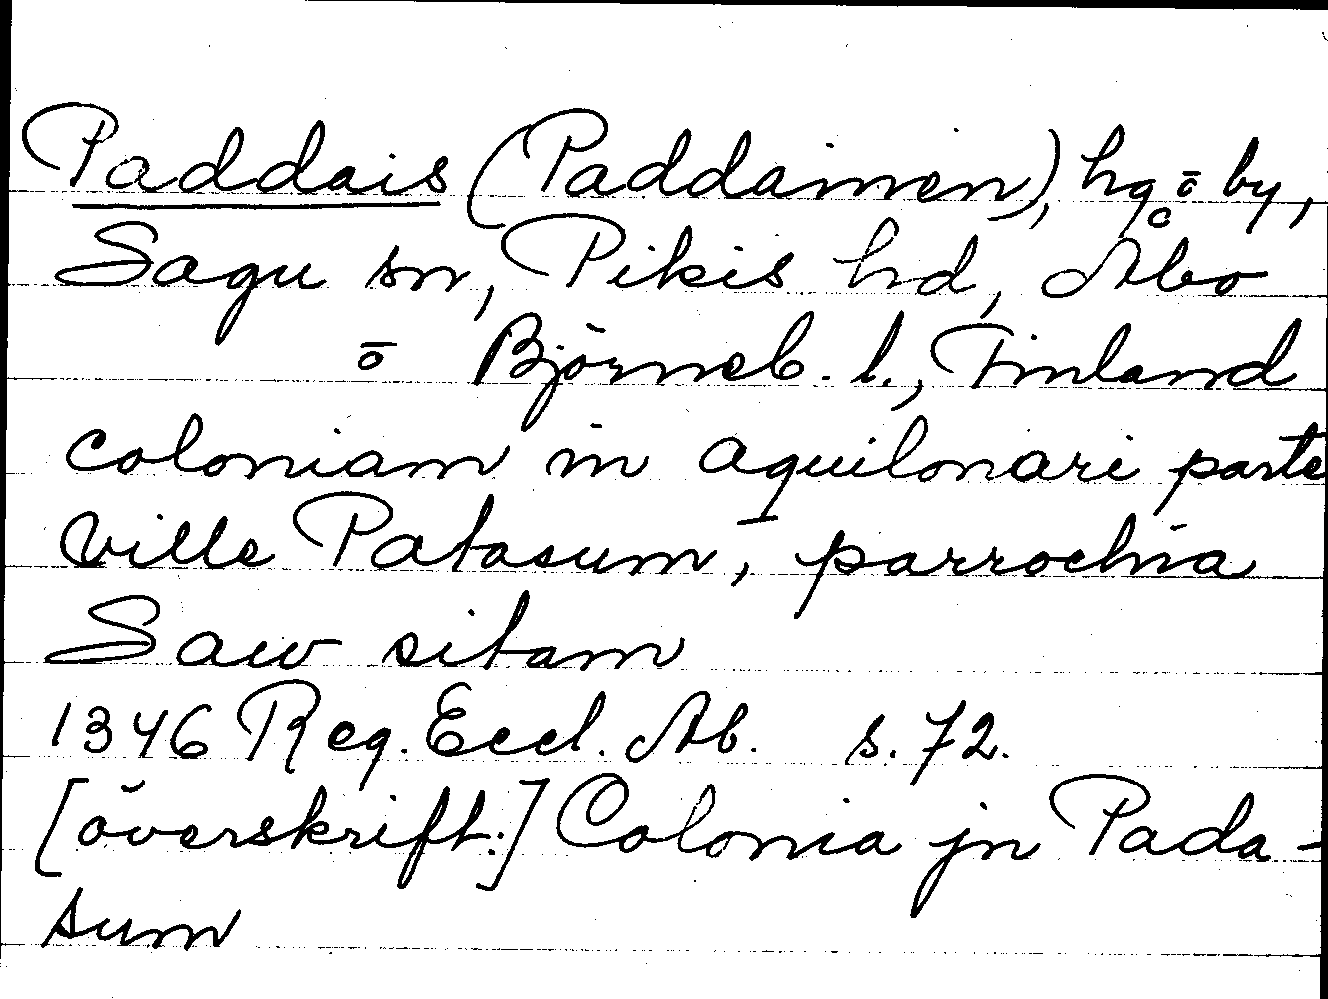 Paddais (Paddainen), hg ō by,
Sagu sn, Pikis hd, Åbo
ō Björneb. l., Finland
coloniam in aquilonari parte
ville Patasum, parrochia
Saw sitam
1346 Reg. Eccl. Ab. s. 72.
[överskrift:] Colonia jn Pada-
sum